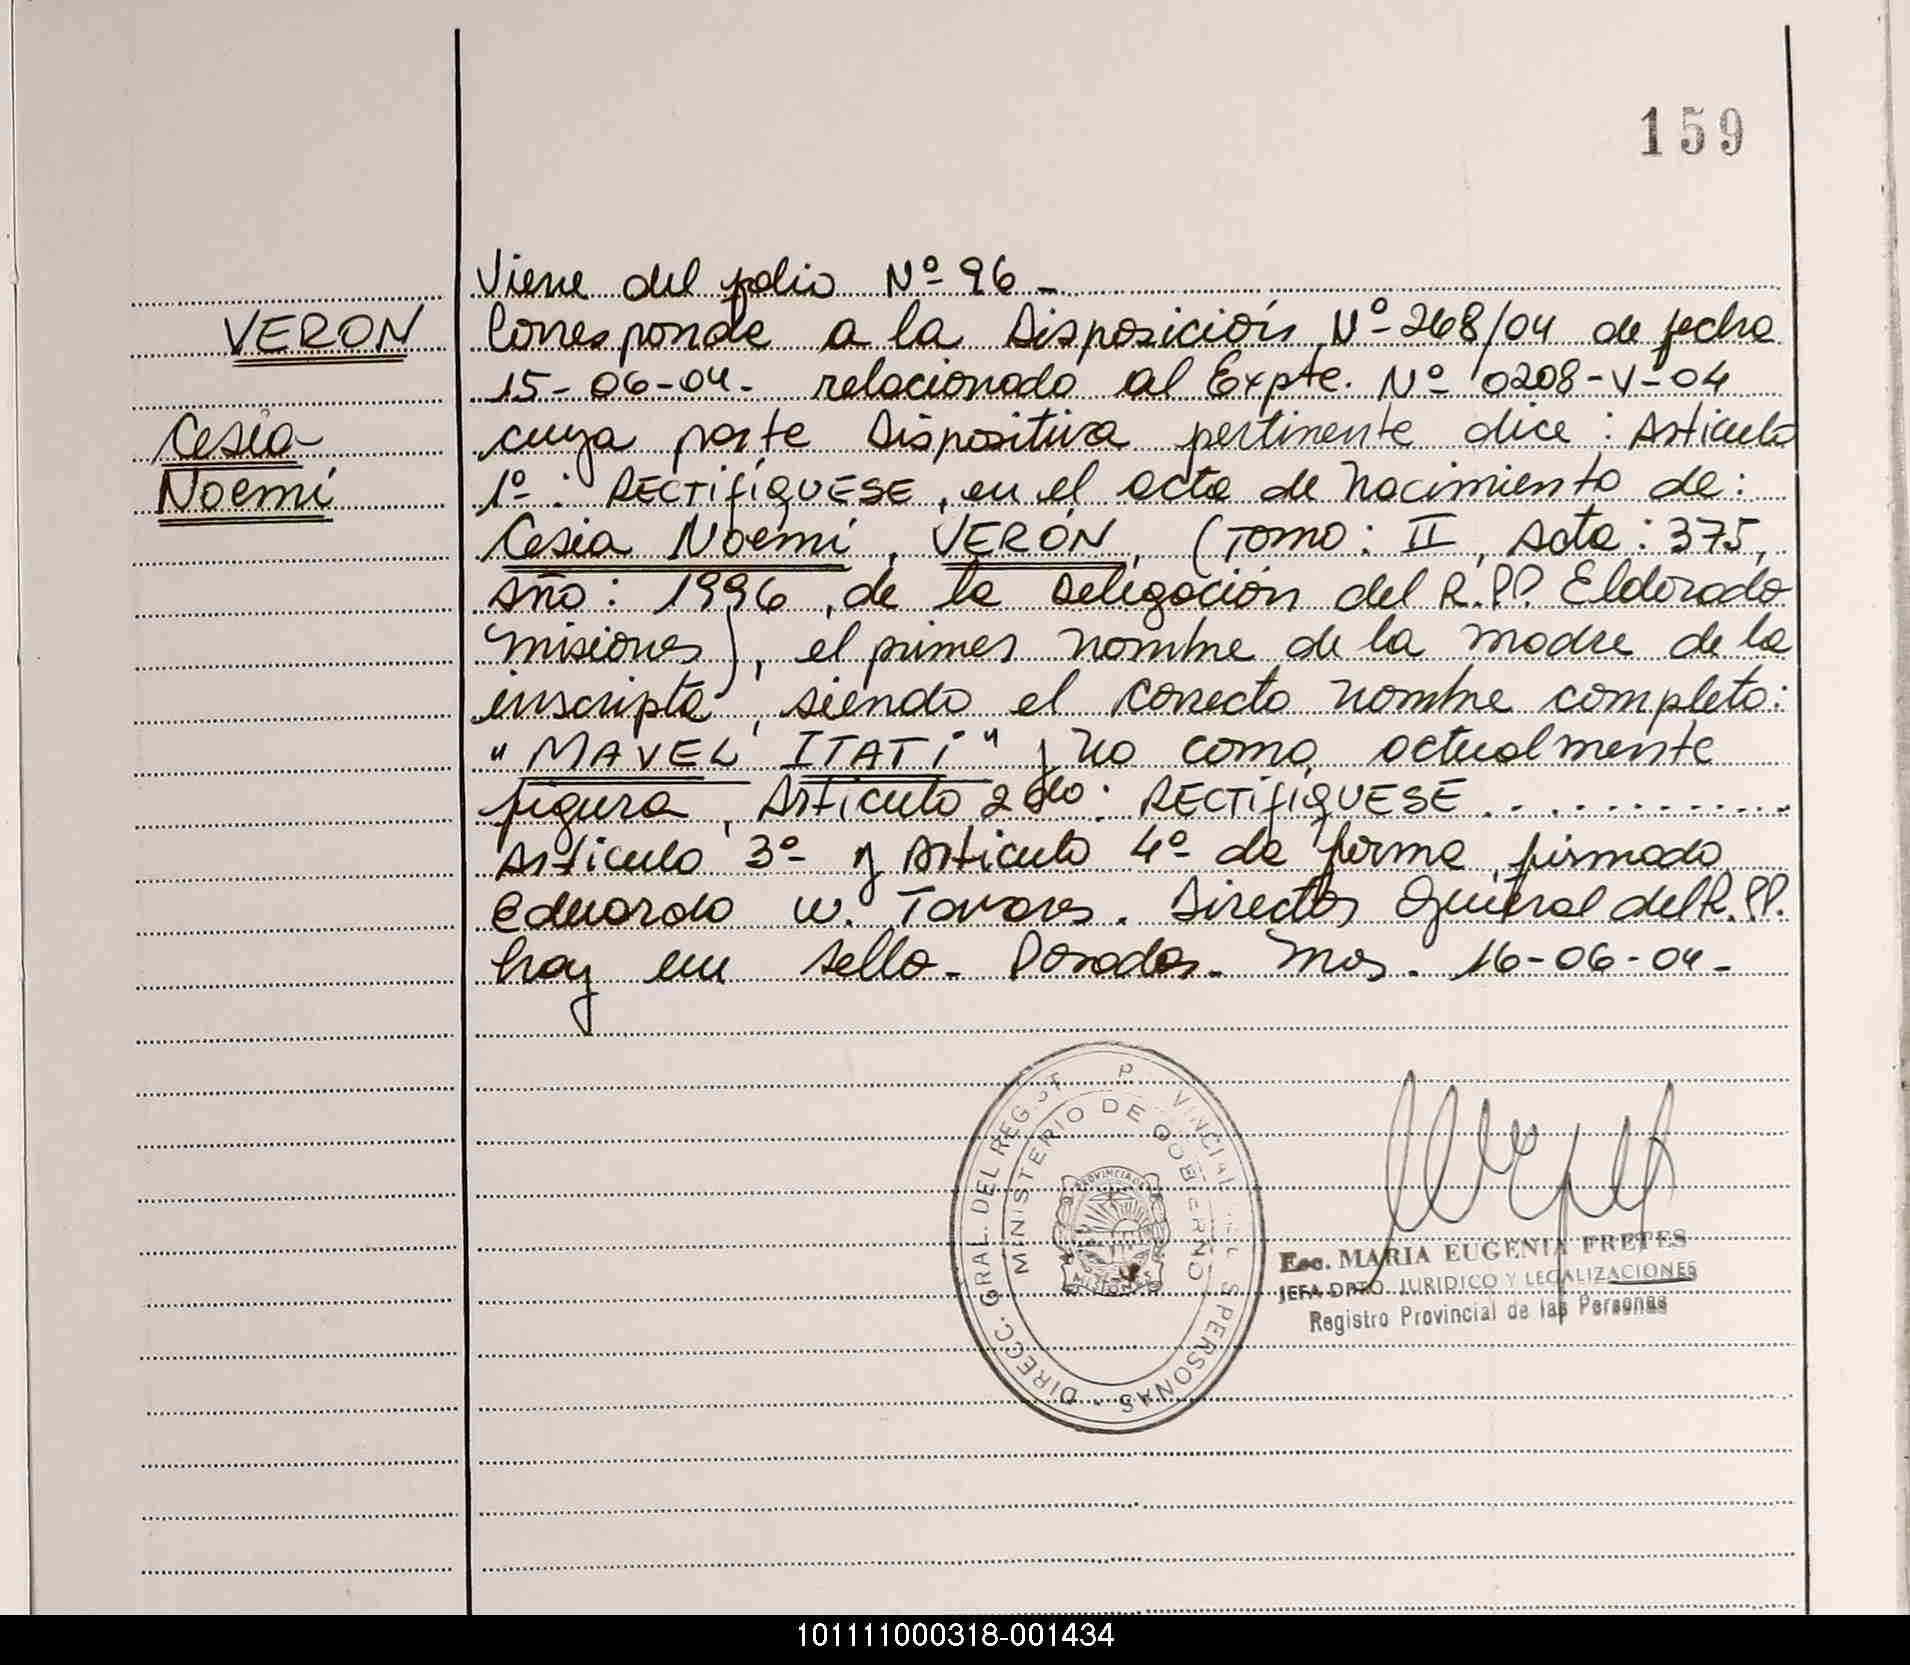 159
Viene del folio Nº 96 -
VERON
Corresponde a la Disposición Nº 268/04 de fecha
15-06-04- relacionado al Expte. Nº 0208-V-04
Cesia
cuya parte Dispositiva pertinente dice: Artículo
Noemí
1º: RECTIFÍQUESE, en el acta de Nacimiento de:
Cesia Noemí, VERÓN, (Tomo: II, Acta: 375,
Año: 1996, de la Delegación del R.P.P. Eldorado
Misiones), el primer nombre de la madre de la
inscripta, siendo el correcto nombre completo:
"MAVEL ITATÍ" y no como actualmente
figura, Artículo 2do: RECTIFÍQUESE.............
Artículo 3º y Artículo 4º de forma, firmado
Eduardo W. Tavares. Director General del R.P.P.
hay un sello- Posadas- Mns. 16-06-04-
DIRECC. GRAL. DEL REGIST P VINCIAL PERSONAS -
MINISTERIO DE GOBIERNO
PROVINCIA DE
MISIONES
Esc. MARIA EUGENIA FRETES
JEFA DPTO. JURIDICO Y LEGALIZACIONES
Registro Provincial de las Personas
101111000318-001434